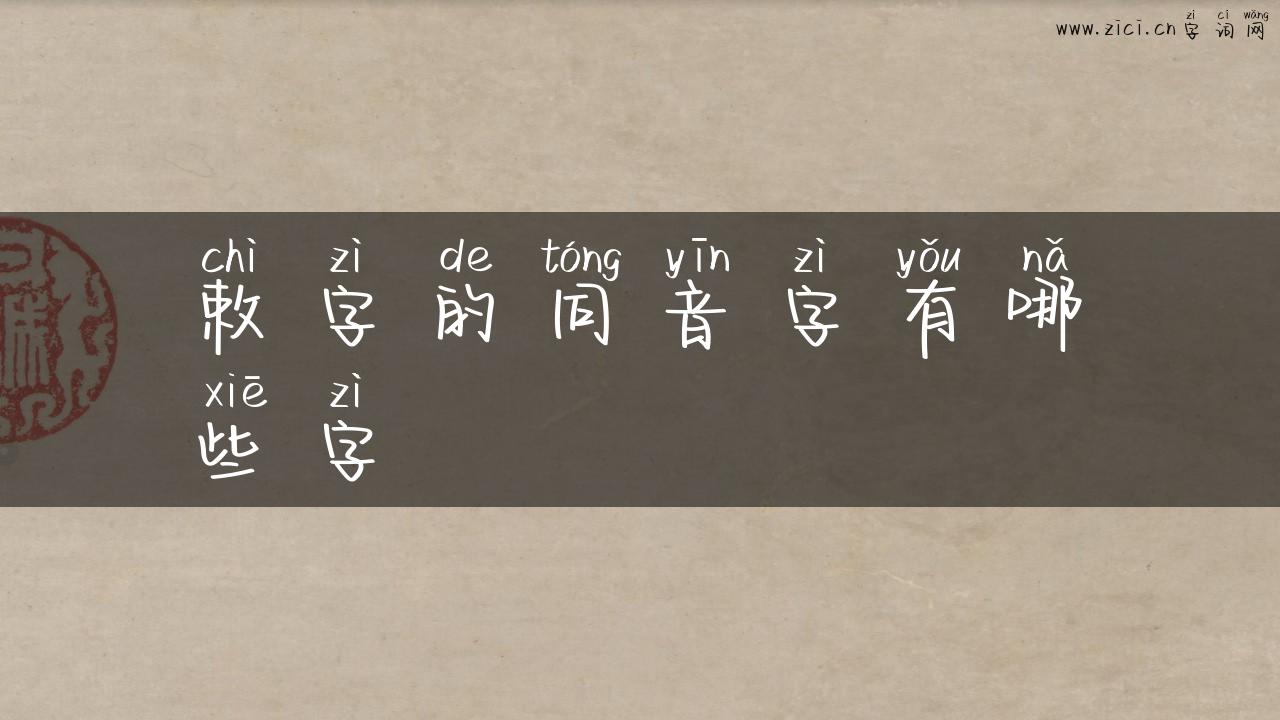 zì cí wǎng
www.zici.cn 字词网
chì zì de tóng yīn zì yǒu nǎ
敕字的同音字有哪
xiē zì
些字